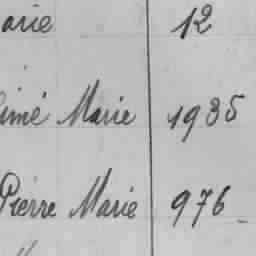 arie 12
imé Marie 1935
Pierre Marie 976